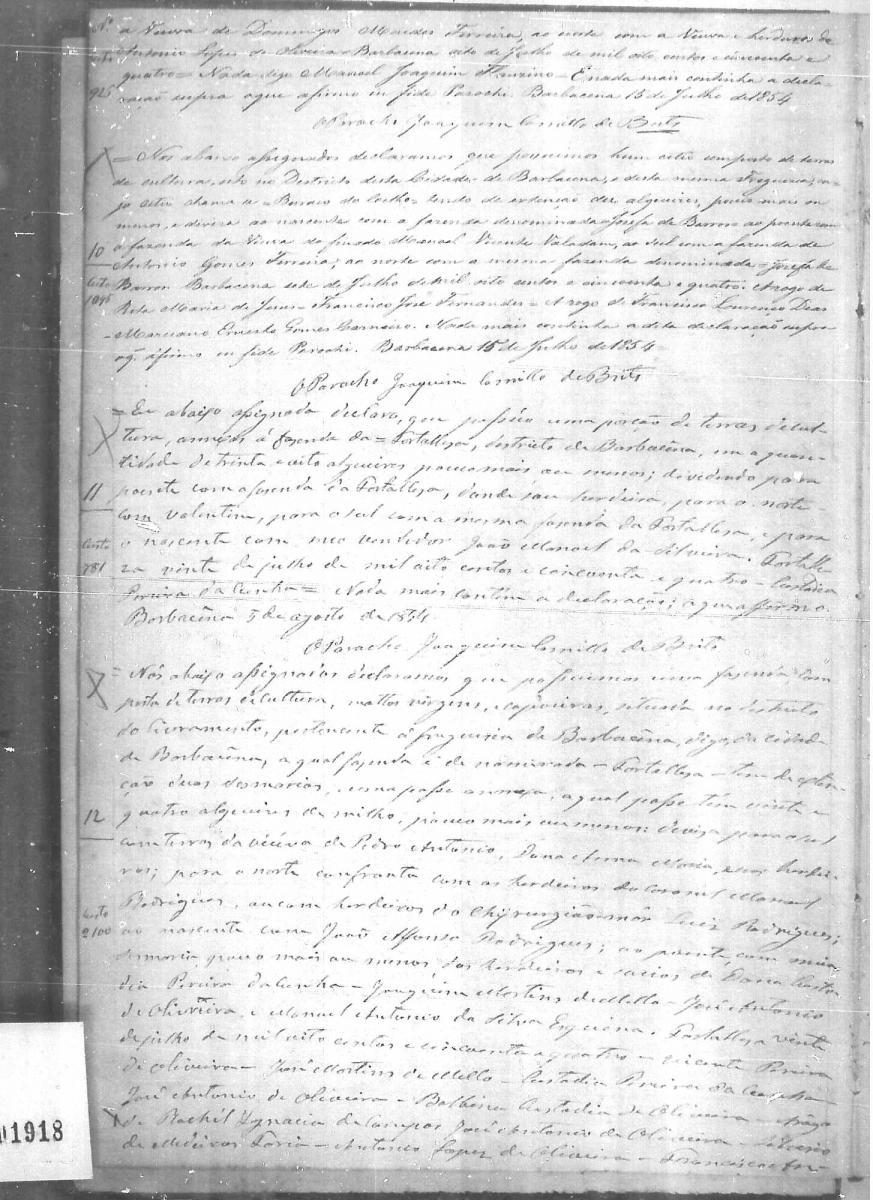 a Viuva de Domingos Mendes Ferreira, ao oeste com a Viuva e herdeiros de
Antonio Lopes de Oliveira = Barbacena oito de Julho de mil oito centos e cincoenta e
quatro = Nada digo Manoel Joaquim = E nada mais continha a decla-
ração supra a que afirmo in fide Parochi. Barbacena 15 de Julho de 1854
O Parocho Joaquim Camillo de Brito
= Nós abaixo assignados declaramos que possuimos hum citio composto de terras
de culturas, sito no Districto desta Cidade de Barbacena, e desta mesma Freguezia, cu-
jo citio chama-se = Buraco do Coelho = tendo de extenção dez alqueires, pouco mais ou
menos, e diviza ao nascente com a fazenda denominada = Josefa de Barros ao poente com
a fazenda da Viuva do finado Manoel Vicente Valadam, ao Sul com a fazenda de
10
Antonio Gomes Ferreira; ao norte com a mesma fazenda denominada = Josefa de
Barros Barbacena sete de Julho de Mil oito centos e cincoenta e quatro = A rogo de
Rita Maria de Jesus = Francisco José Fernandes = A rogo de Francisco Lourenço Dias
= Marciano Ernesto Gomes Carneiro. Nada mais continha a dita declaração supra
aq. afirmo in fide Parochi. Barbacena 15 de Julho de 1854
O Parocho Joaquim Camillo de Brito
= Eu abaixo assignada declaro, que possúo uma porção de terras de cul-
tura, annexas á fazenda da = Fortallesa, destricto de Barbacena, em a quan-
tidade de trinta e oito alqueires pouco mais ou menos; dividindo para
11
poente com a fazenda da Fortallesa, d'onde sou herdeira, para o norte
com Valentim, para o sul com a mesma fazenda da Fortallesa, e para
Custo
o nascente com meo vendedor João Manoel da Silveira. Fortalle-
781
za vinte de julho de mil oito centos e cincoenta e quatro = Custodia
Pereira da Cunha = Nada mais continha a declaração; a que affirmo.
Barbacena 5 de agosto de 1854
O Parocho Joaquim Camillo de Brito
= Nós abaixo assignados declaramos que possuimos uma fazenda com
posta de terras de cultura, mattos virgens, e capoeiras, situada no destricto
do Livramento, pertencente á freguesia de Barbacena, digo, da cidade
de Barbacena, a qual fazenda é denominada = Fortallesa = tem de exten-
ção duas sesmarias, e uma posse annexa, a qual posse tem vinte e
12
quatro alqueires de milho, pouco mais ou menos: devisa para o sul
com terras da viuva de Pedro Antonio, Dona Anna Maria, e seos herdei-
ros; para o norte confronta com os herdeiros do Coronel Manoel
Custo
Rodrigues, ou com herdeiros do Chyrurgião-mór Luiz Rodrigues;
2100
ao nascente com João Affonso Rodrigues; ao poente, com meia
sesmaria, pouco mais ou menos dos herdeiros e socios de Dona Custo-
dia Pereira da Cunha = Joaquim Martins de Mello = José Antonio
de Oliveira, e Manoel Antonio da Silva. Fortallesa vinte
de julho de mil oito centos e cincoenta e quatro = Vicente Pereira
de Oliveira = José Martins de Mello = Custodia Pereira da Cunha =
José Antonio de Oliveira = Balbina Custodia de Oliveira = Arogo
de Ignacia de Campos José Antonio de Oliveira =
de Medeiros Faria = Antonio Lopez de Oliveira = Francisco An-
01918